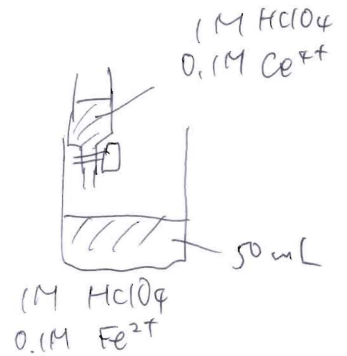 1M HClO4
0.1M Ce4+
50 mL
1M HClO4
0.1M Fe2+